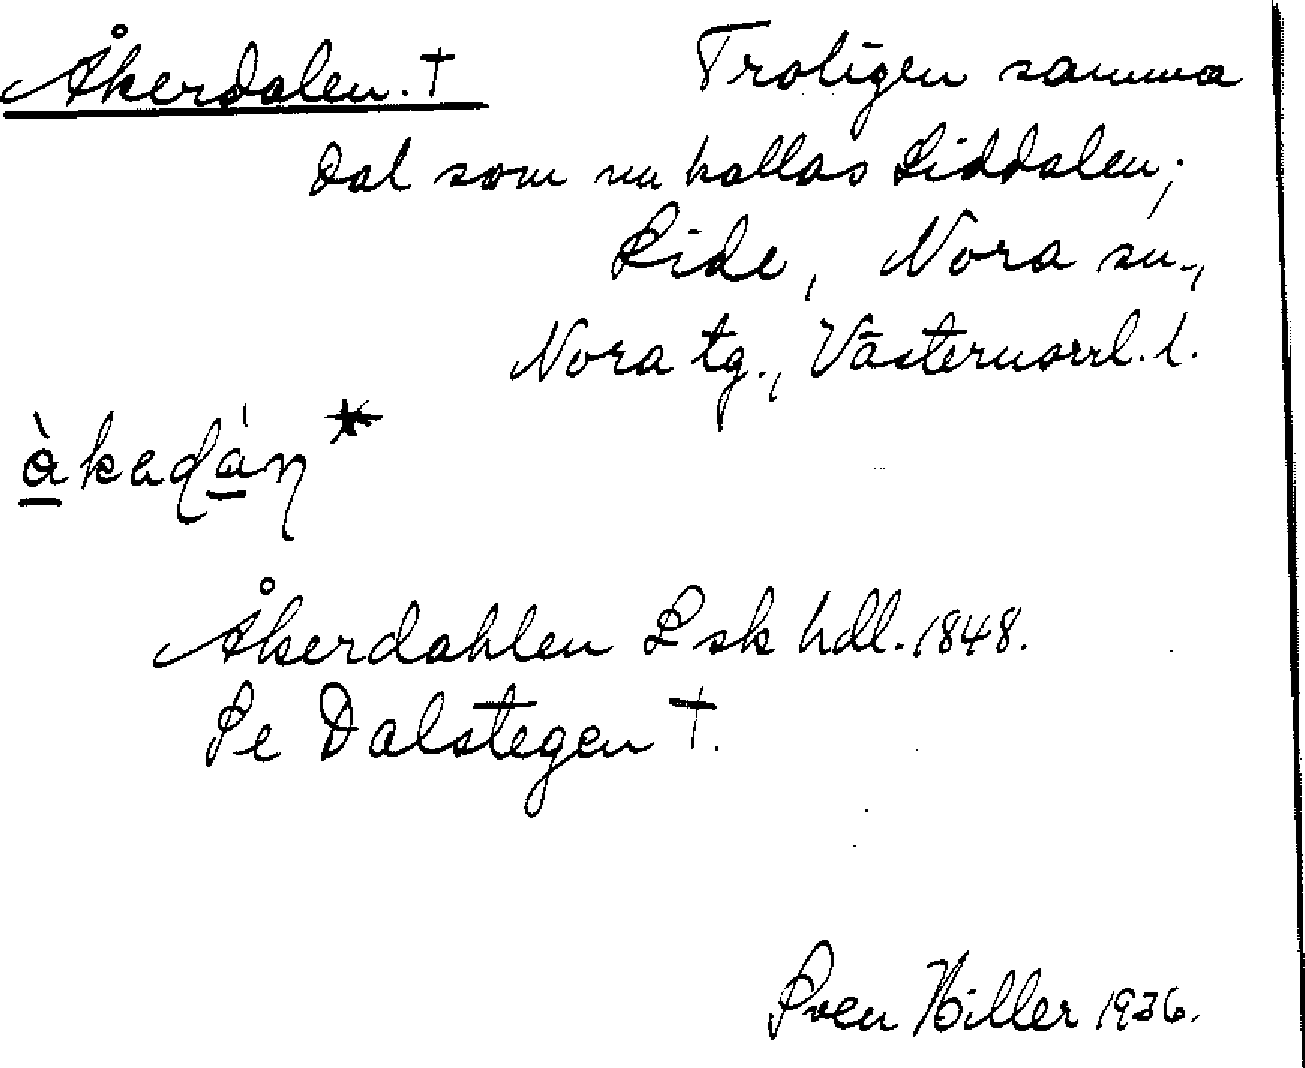 Åkerdalen. † Troligen samma
dal som nu kallas Liddalen;
Lide, Nora sn.,
Nora tg., Västernorrl. l.
Åkerdahlen Lsk hdl. 1848.
Se Dalstegen †.
Sven Hiller 1936.